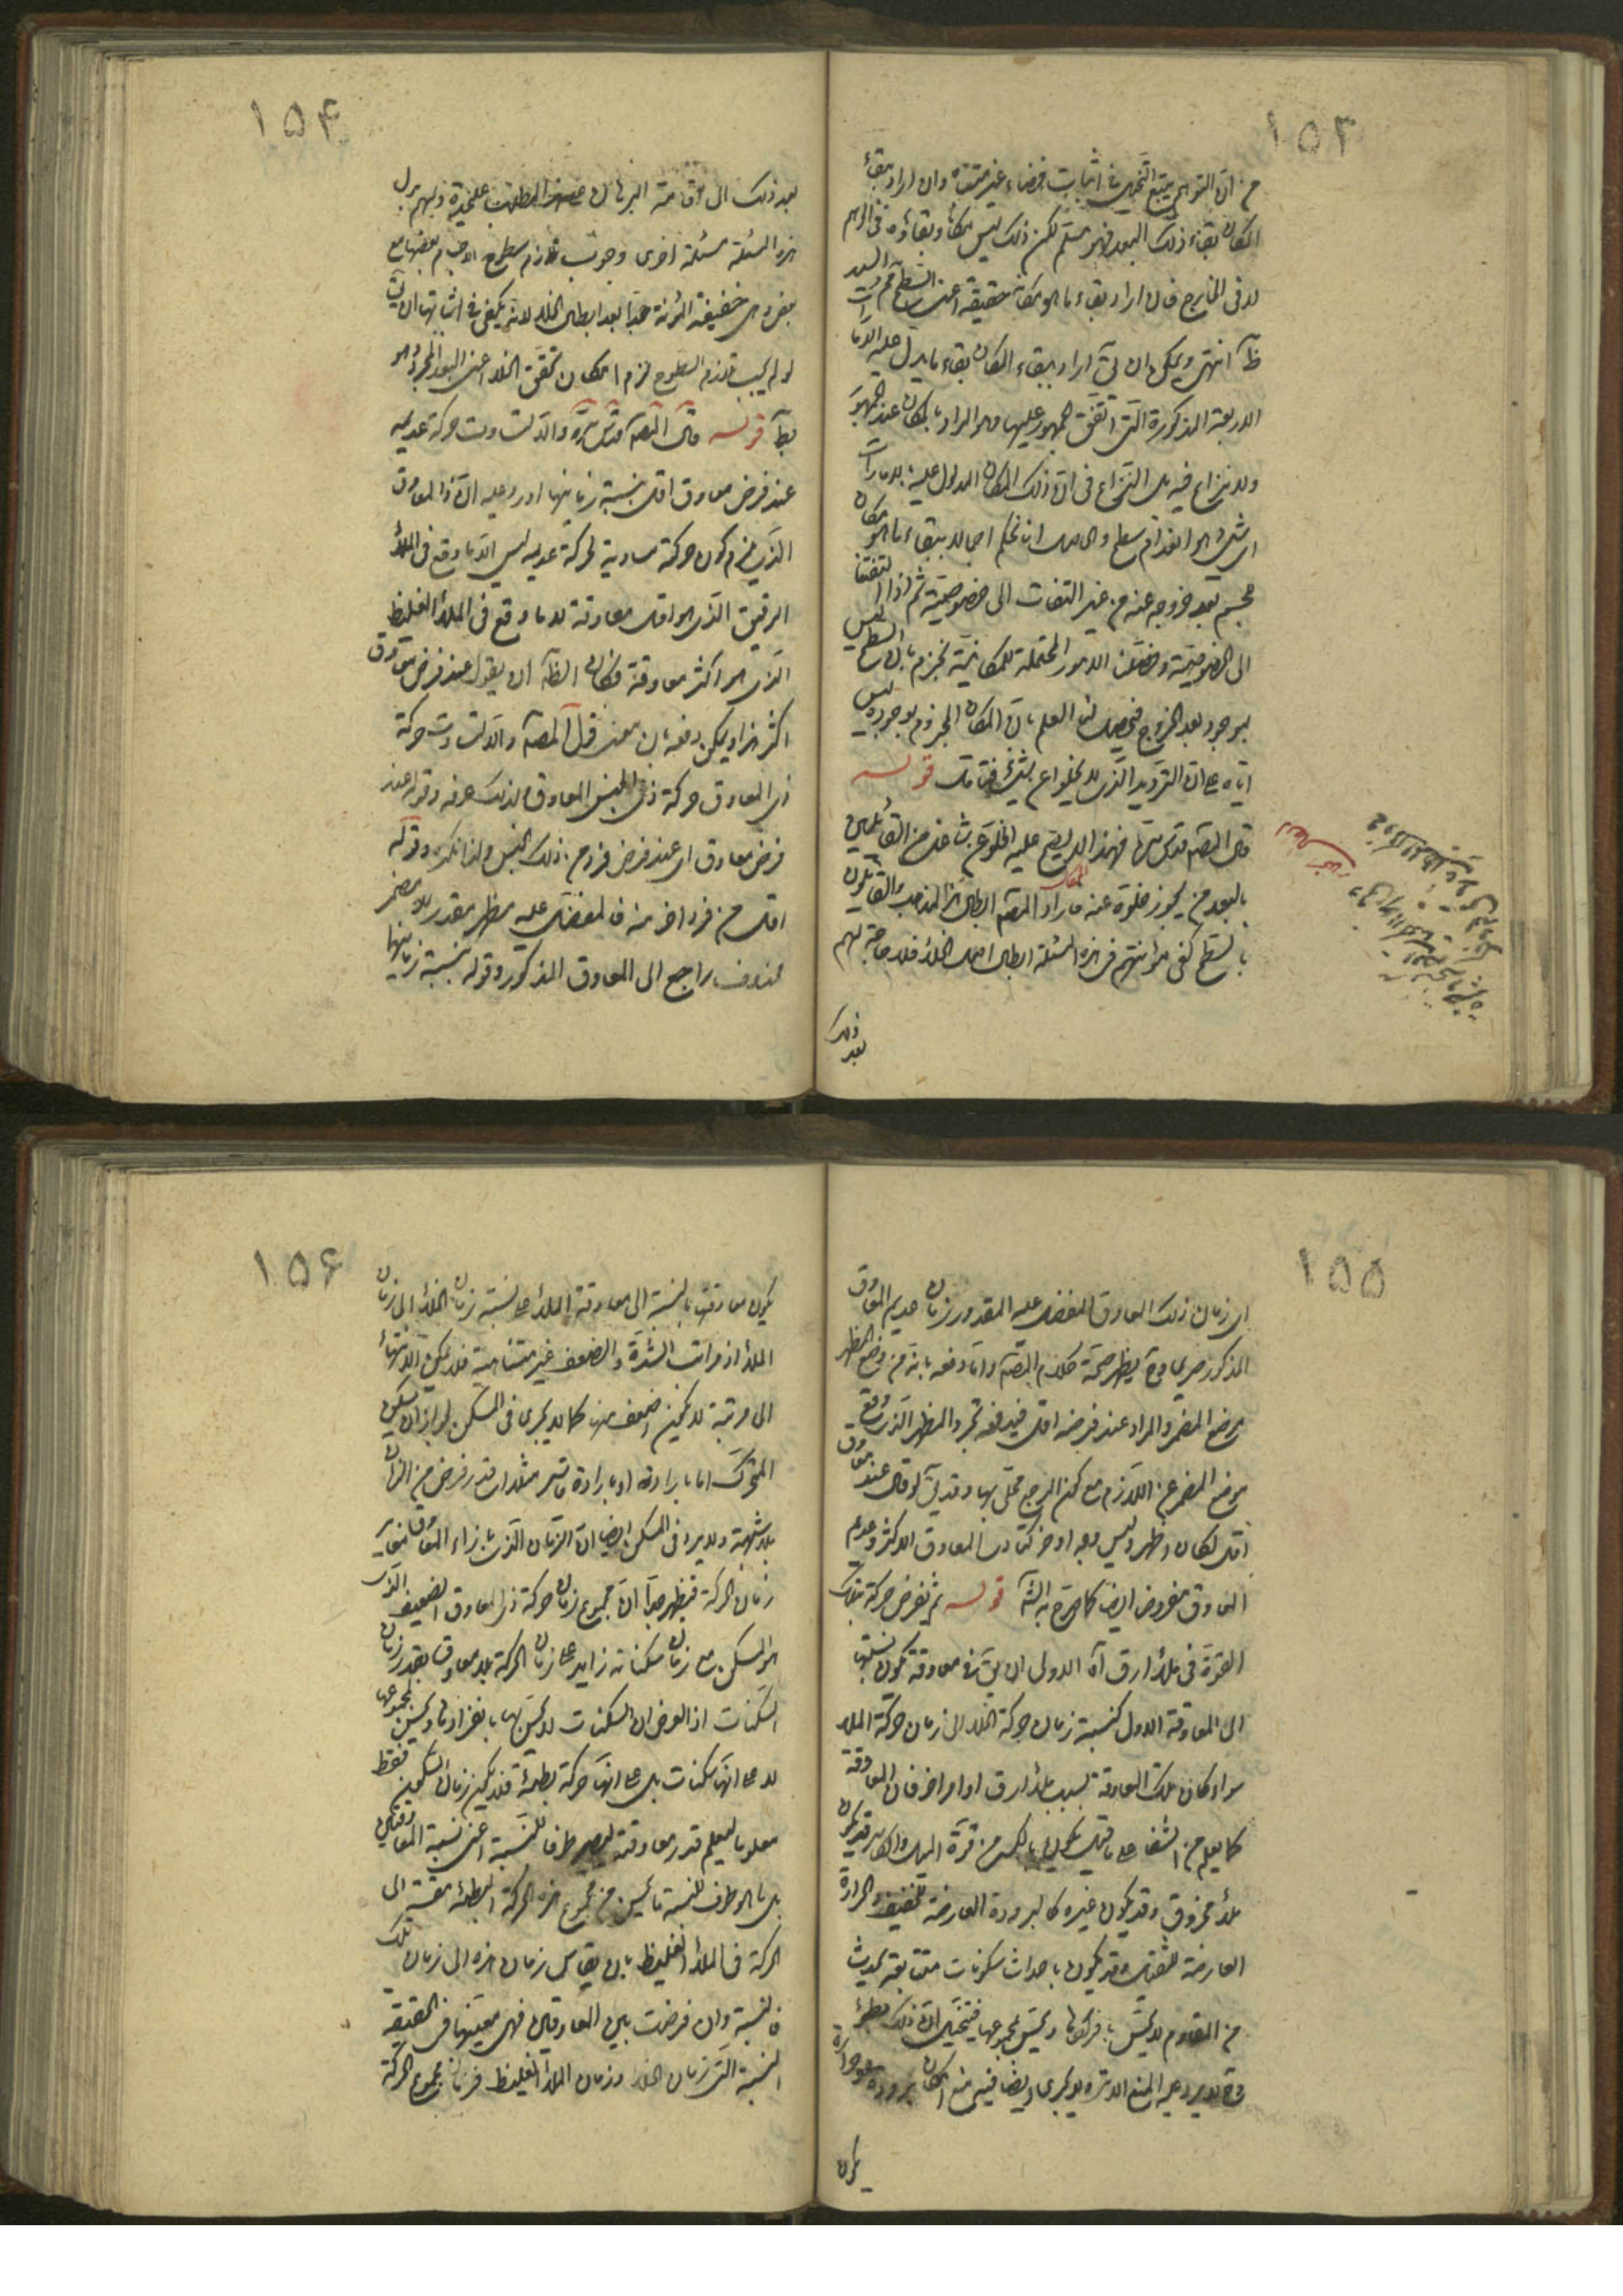 ۱۵۳
من ان التوهم يتبع التخيل في اثبات فضاء غير متناه وان اراد ببقاء
المكان بقاء ذلك البعد فهو مسلم لكن ذلك ليس مكانا وبقاؤه في الوهم
لا في الخارج فان اراد بقاء ما هو مكان حقيقة اعنى السطح فم والسند
ظاهر انتهى ويمكن ان يق اراد ببقاء المكان بقاء ما يدل عليه الامارات
الاربعة المذكورة التي اتفق الجمهور عليها وهو المراد بالمكان عند الجمهور
ولا نزاع فيه بل النزاع في ان ذلك المكان المدلول عليه بالامارات
اى شئ هو انعدام سطح والحاصل انا نحكم اجمالا ببقاء ما هو مكان
لجسم بعد خروجه عنه من غير التفات الى خصوصية ثم اذا التفتنا
الى الخصوصية وخصصنا الامور المحتملة للمكانية نجزم بان السطح ليس
بموجود بعد الخروج فيحصل لنا العلم بان المكان المجزوم بوجوده ليس
اياه على ان الترديد الذي لا يخلو عن شئ فتأمل قوله
قال المصنف قدس سره فهذا الذي يصح عليه الخلو عن شاغل من القائلين
بالبعد من يجوز خلوه عنه فاراد المصنف ابطال هذا المذهب والقائلون
بالسطح كفى مؤانتهم في هذه المسئلة ابطال اصل الخلأ فلا حاجة لهم
بعد ذلك
۱۵۴
بعد ذلك الى اقامة البرهان على هذا المطلب علىحدة ولهم بدل
هذه المسئلة مسئلة اخرى وجوب تلازم سطوح الاجسام بعضها مع
بعض وهى خفيفة المؤنة جدا بعد ابطال الخلأ لانه يكفى في اثباتها ان يق
لو لم يجب تلازم السطوح لزم امكان تحقق الخلأ اعنى البعد المجرد وهو
بط قوله قال المصنف قدس سره والا لتساوت حركة عديمه
عند فرض معاوق اقل بنسبة زمانيهما اورد عليه ان ذا المعاوق
الذي يلزم كون حركته مساوية لحركة عديمه ليس الا ما وقع في الملأ
الرقيق الذي هو اقل معاوقة لا ما وقع في الملأ الغليظ
الذي هو اكثر معاوقة فكان الظاهر ان يقول عند فرض معاوق
اكثر هذا ويمكن دفعه بان معنى قول المصنف والا لتساوت حركة
ذى المعاوق حركة ذى الجنس المعاوق ولذلك عرفه وقوله عند
فرض معاوق اى عند فرض فرد من ذلك الجنس ولذا نكره وقوله
اقل من فرد اخر منه فالمفضل عليه مظهر مقدر لا مضمر
محذوف راجع الى المعاوق المذكور وقوله بنسبة زمانيهما
۱۵۵
اى زمان ذلك المعاوق المفضل عليه المقدر وزمان عديم المعاوق
المذكور صريحا وح يظهر صحة كلام المصنف واما دفعه بانه من وضع المظهر
موضع المضمر والمراد عند فرضه اقل فيدفعه تجرد المظهر الذي وقع
موضع المضمر عن اللازم مع كون المرجع محلى بها وقد يق لو قال عند معاوق
اقل لكان اظهر وليس وجه اوضح لتساوى المعاوق الاكثر وعديم
المعاوق مفروض ايضا كما صرح به الشه قوله ثم نفرض حركة بتلك
القوة في ملأ ارق اه الاولى ان يق في معاوقة تكون نسبتها
الى المعاوقة الاول كنسبة زمان حركة الخلأ الى زمان حركة الملأ
سواء كان تلك المعاوقة بسبب ملأ ارق او امر اخر فان المعاوقة
كما يعلم من الشفا على ما قيل يكون بالعكس من قوة الميل والكاسر قد يكون
ملأ مخروق وقد يكون غيره كالبرودة العارضة للخفيف والحرارة
العارضة للثقيل وقد يكون باحداث سكونات متتابعة يحدث
من المقاوم لا يحس بافرادها ويحس بمجموعها فيتخيل ان ذلك بطؤ
وح لا يرد عليه المنع الا تره لا يجرى ايضا فيه منع امكان برودة او حرارة
يكون
۱۵۶
يكون معاوقتها بالنسبة الى معاوقة الملأ على نسبة زمان الخلأ الى زمان
الملأ اذ مراتب الشدة والضعف غير متناهية فلا يمكن الانتهاء
الى مرتبة لا يمكن اضعف منها كما لا يجرى في السكون لجواز ان يسكن
المتحرك اما بارادته او بارادة قاسر مثلا اى قدر فرض من الزمان
بلا شبهة ولا يرد في السكون ايضا ان الزمان الذي بازاء المعاوق مغاير
زمان الحركة فيظهر جدا ان مجموع زمان حركة ذى المعاوق الضعيف الذي
هو السكون مع زمان سكناته زايد على زمان الحركة بلا معاوق بقدر زمان
السكنات اذ الفرض ان السكنات لا يحس بها بانفرادها ويحس بمجموعها
لا على انها سكنات بل على انها حركة بطيئة فلا يكون زمان السكون فقط
معلوما ليعلم قدر معاوقته ليصير طرفا للنسبة اعنى نسبة المعاوقتين
بل ما هو طرف للنسبة ما يحس من مجموع هذه الحركة البطيئة مقيسة الى
الحركة في الملأ الغليظ بان يقاس زمان هذه الى زمان تلك
فالنسبة وان فرضت بين المعاوقين فهى بعينها في الحقيقة
النسبة التي زمان الخلأ وزمان الملأ الغليظ فزمان مجموع الحركة